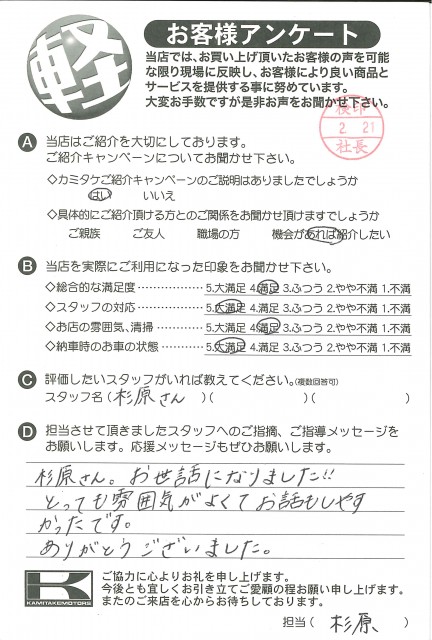 軽
お客様アンケート
当店では、お買い上げ頂いたお客様の声を可能
な限り現場に反映し、お客様により良い商品と
サービスを提供する事に努めています。
大変お手数ですが是非お声をお聞かせ下さい。
検印
2. 21
社長
A 当店はご紹介を大切にしております。
ご紹介キャンペーンについてお聞かせ下さい。
◇カミタケご紹介キャンペーンのご説明はありましたでしょうか
はい いいえ
◇具体的にご紹介頂ける方とのご関係をお聞かせ頂けますでしょうか
ご親族 ご友人 職場の方 機会があれば紹介したい
B 当店を実際にご利用になった印象をお聞かせ下さい。
◇総合的な満足度 ……………… 5.大満足 4.満足 3.ふつう 2.やや不満 1.不満
◇スタッフの対応 ……………… 5.大満足 4.満足 3.ふつう 2.やや不満 1.不満
◇お店の雰囲気、清掃 ………… 5.大満足 4.満足 3.ふつう 2.やや不満 1.不満
◇納車時のお車の状態 ………… 5.大満足 4.満足 3.ふつう 2.やや不満 1.不満
C 評価したいスタッフがいれば教えてください。(複数回答可)
スタッフ名 ( 杉原さん )( )( )
D 担当させて頂きましたスタッフへのご指摘、ご指導メッセージを
お願いします。応援メッセージもぜひお願いします。
杉原さん。お世話になりました!!
とっても雰囲気がよくてお話もしやす
かったです。
ありがとうございました。
K
KAMITAKEMOTORS
ご協力に心よりお礼を申し上げます。
今後とも宜しくお引き立てご愛顧の程お願い申し上げます。
またのご来店を心からお待ちしております。
担当 ( 杉原 )